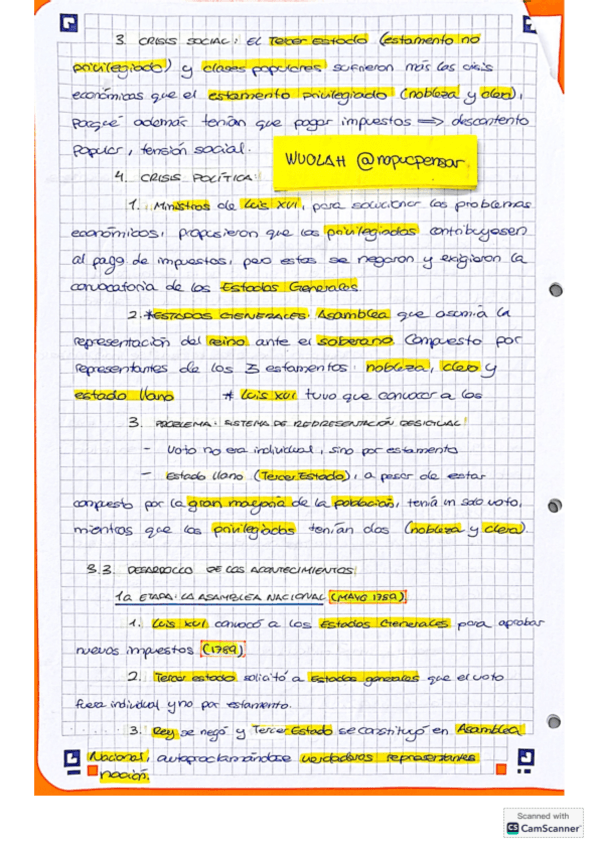 3. CRISIS SOCIAL: EL Tercer Estado (estamento no
privilegiado) y clases populares sufrieron más las crisis
económicas que el estamento privilegiado (nobleza y clero),
porque además tenían que pagar impuestos ⟹ descontento
popular, tensión social.
WUOLAH @nopucpensar
4. CRISIS POLÍTICA:
1. Ministros de Luis XVI, para solucionar los problemas
económicos, propusieron que los privilegiados contribuyesen
al pago de impuestos, pero estos se negaron y exigieron la
convocatoria de los Estados Generales.
2.*ESTADOS GENERALES: Asamblea que asumía la
representación del reino ante el soberano. Compuesto por
representantes de los 3 estamentos: nobleza, clero y
estado llano * Luis XVI tuvo que convocar a los
3. PROBLEMA: SISTEMA DE REPRESENTACIÓN DESIGUAL:
- Voto no era individual, sino por estamento
- Estado llano (Tercer Estado), a pesar de estar
compuesto por la gran mayoría de la población, tenía un solo voto,
mientras que los privilegiados tenían dos (nobleza y clero)
3.3. DESARROLLO DE LOS ACONTECIMIENTOS
1a ETAPA: LA ASAMBLEA NACIONAL (MAYO 1789)
1. Luis XVI convocó a los Estados Generales para aprobar
nuevos impuestos (1789)
2. Tercer estado solicitó a Estados generales que el voto
fuera individual y no por estamento.
3. Rey se negó y Tercer Estado se constituyó en Asamblea
Nacional, autoproclamándose verdaderos representantes
nación.
Scanned with
CS CamScanner